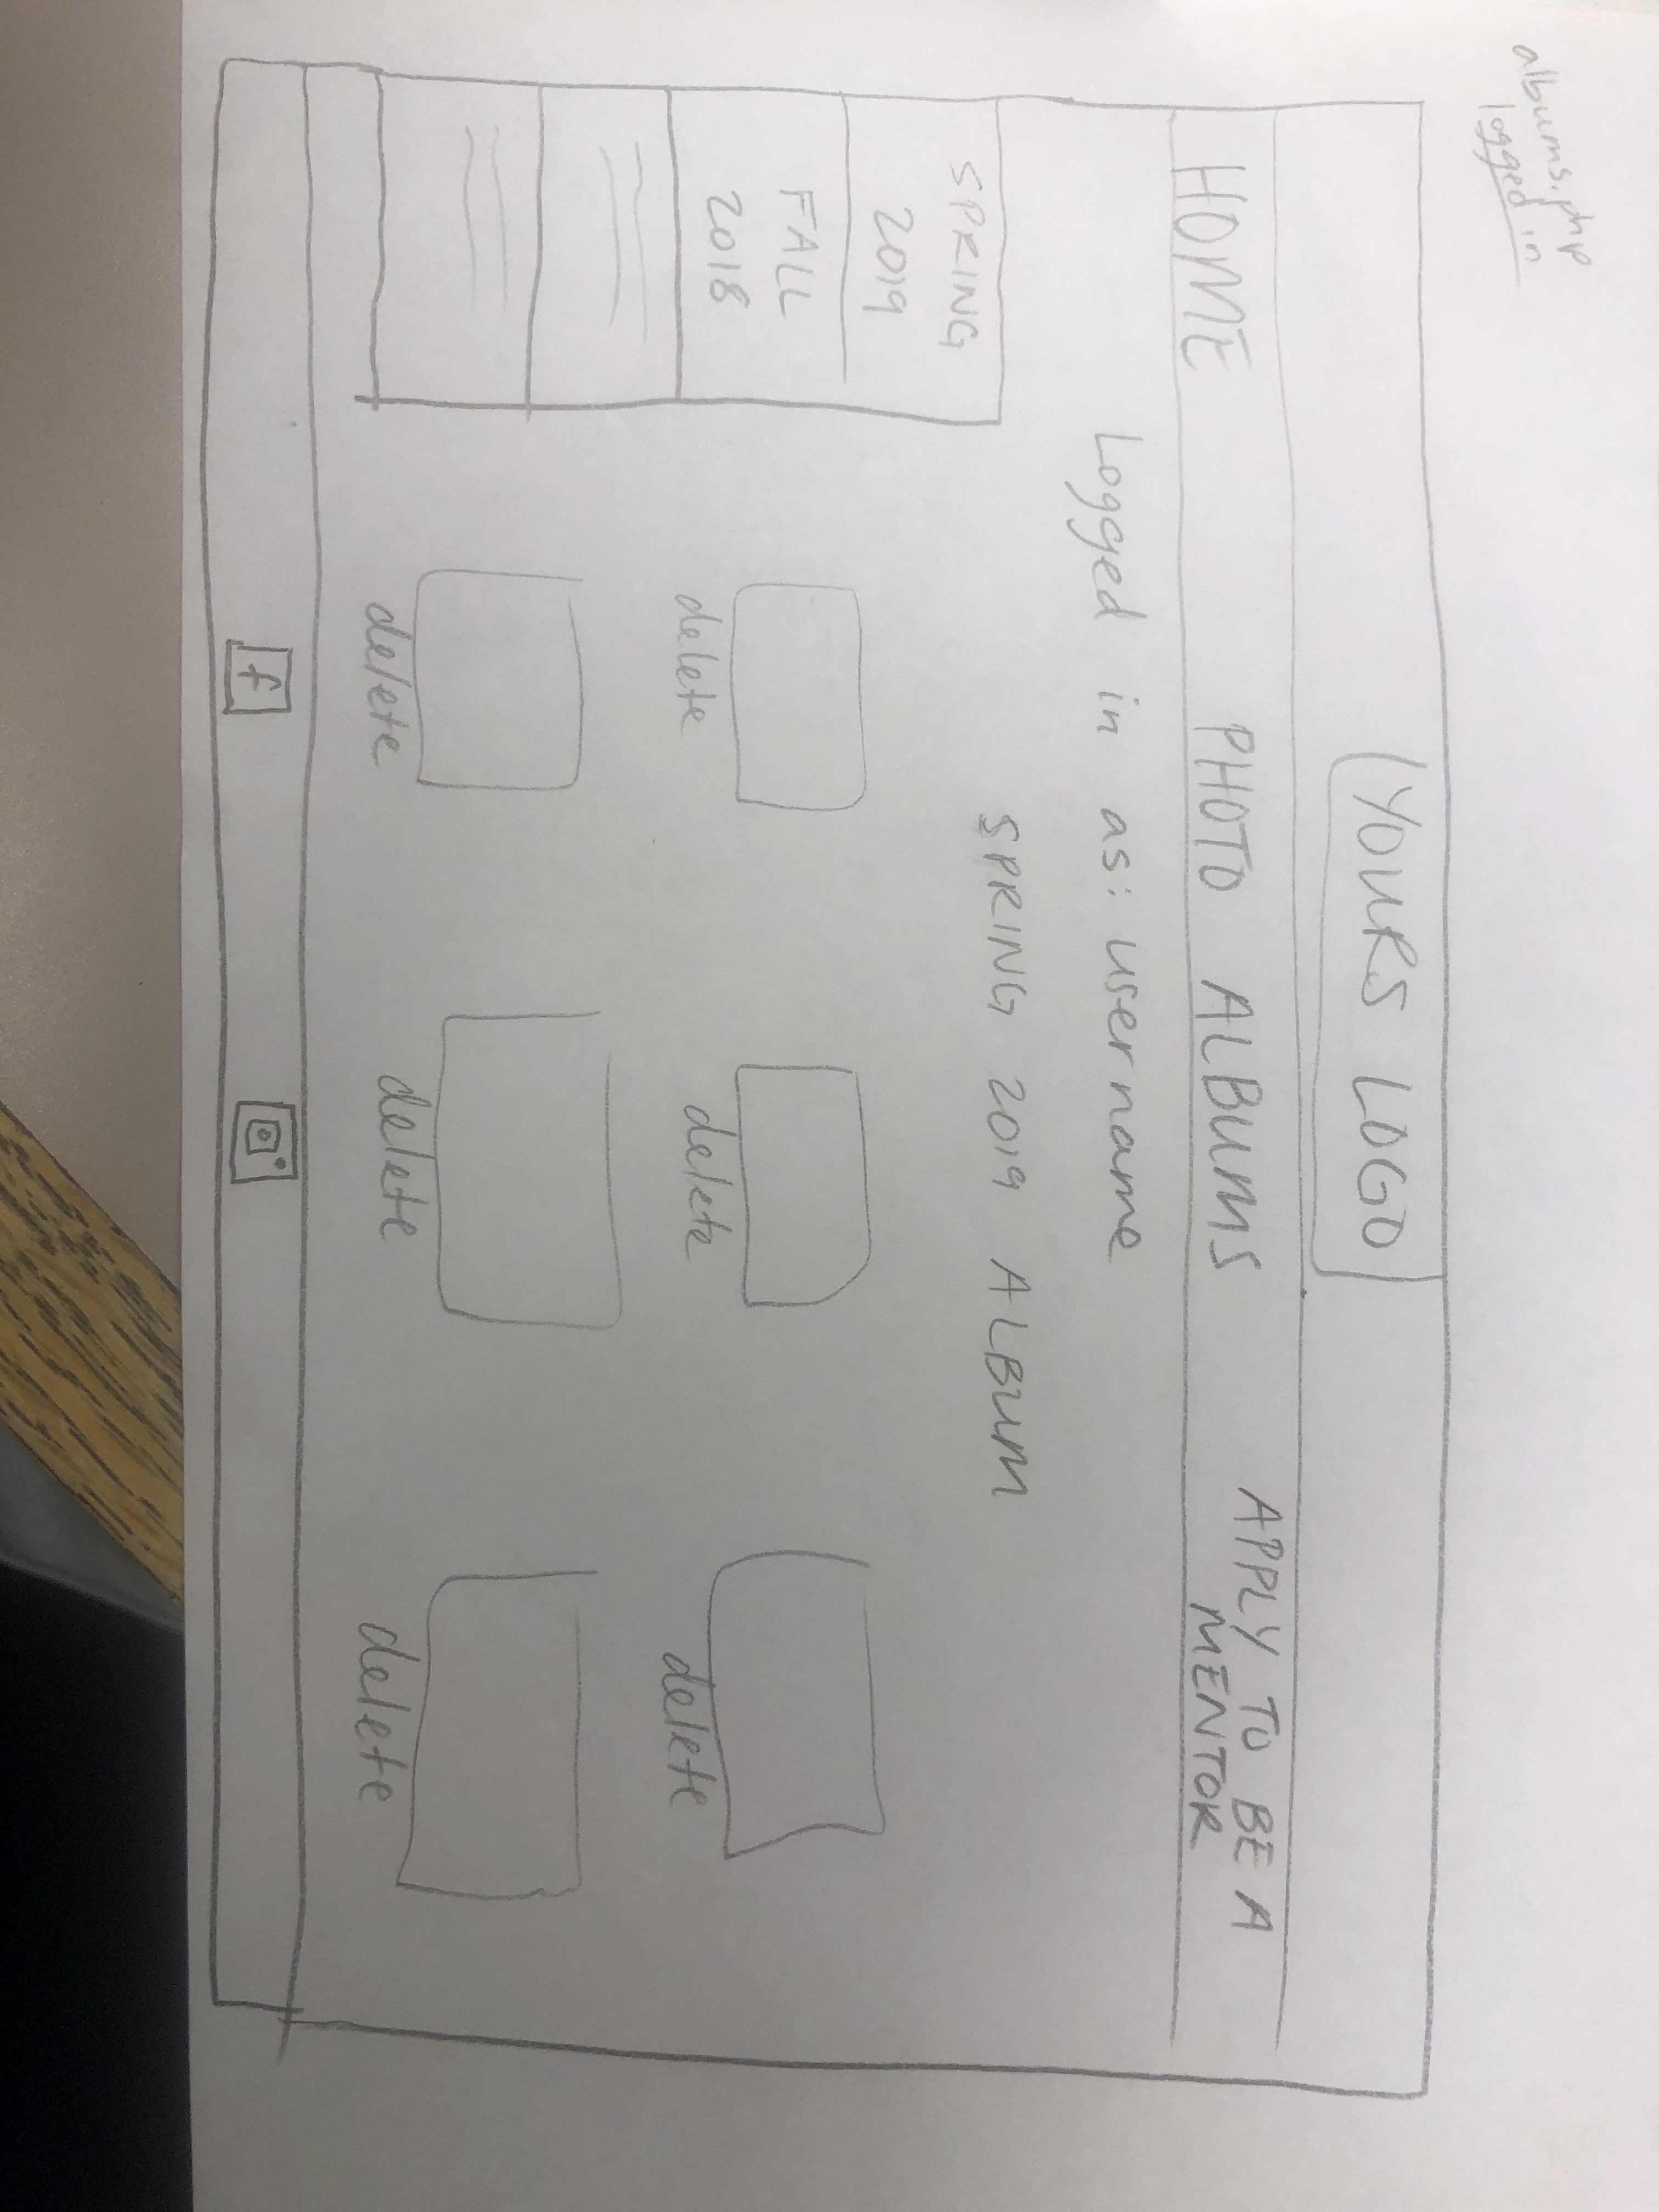 albums.php
logged in
YOURS LOGO
HOME
PHOTO ALBUMS
APPLY TO BE A
MENTOR
Logged in as: username
SPRING 2019 ALBUM
SPRING
2019
FALL
2018
delete
delete
delete
delete
delete
delete
f